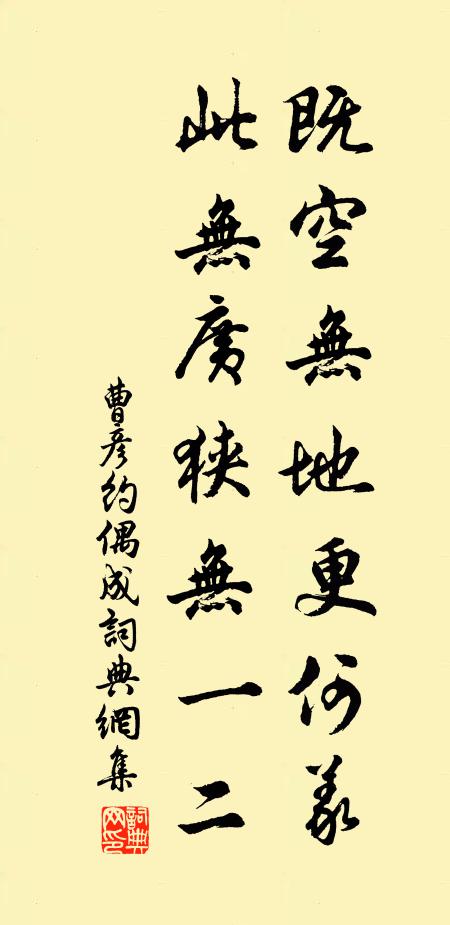 既空無地更何義
此無廣狹無一二
曹彦約偶成詞典網集
詞典网印